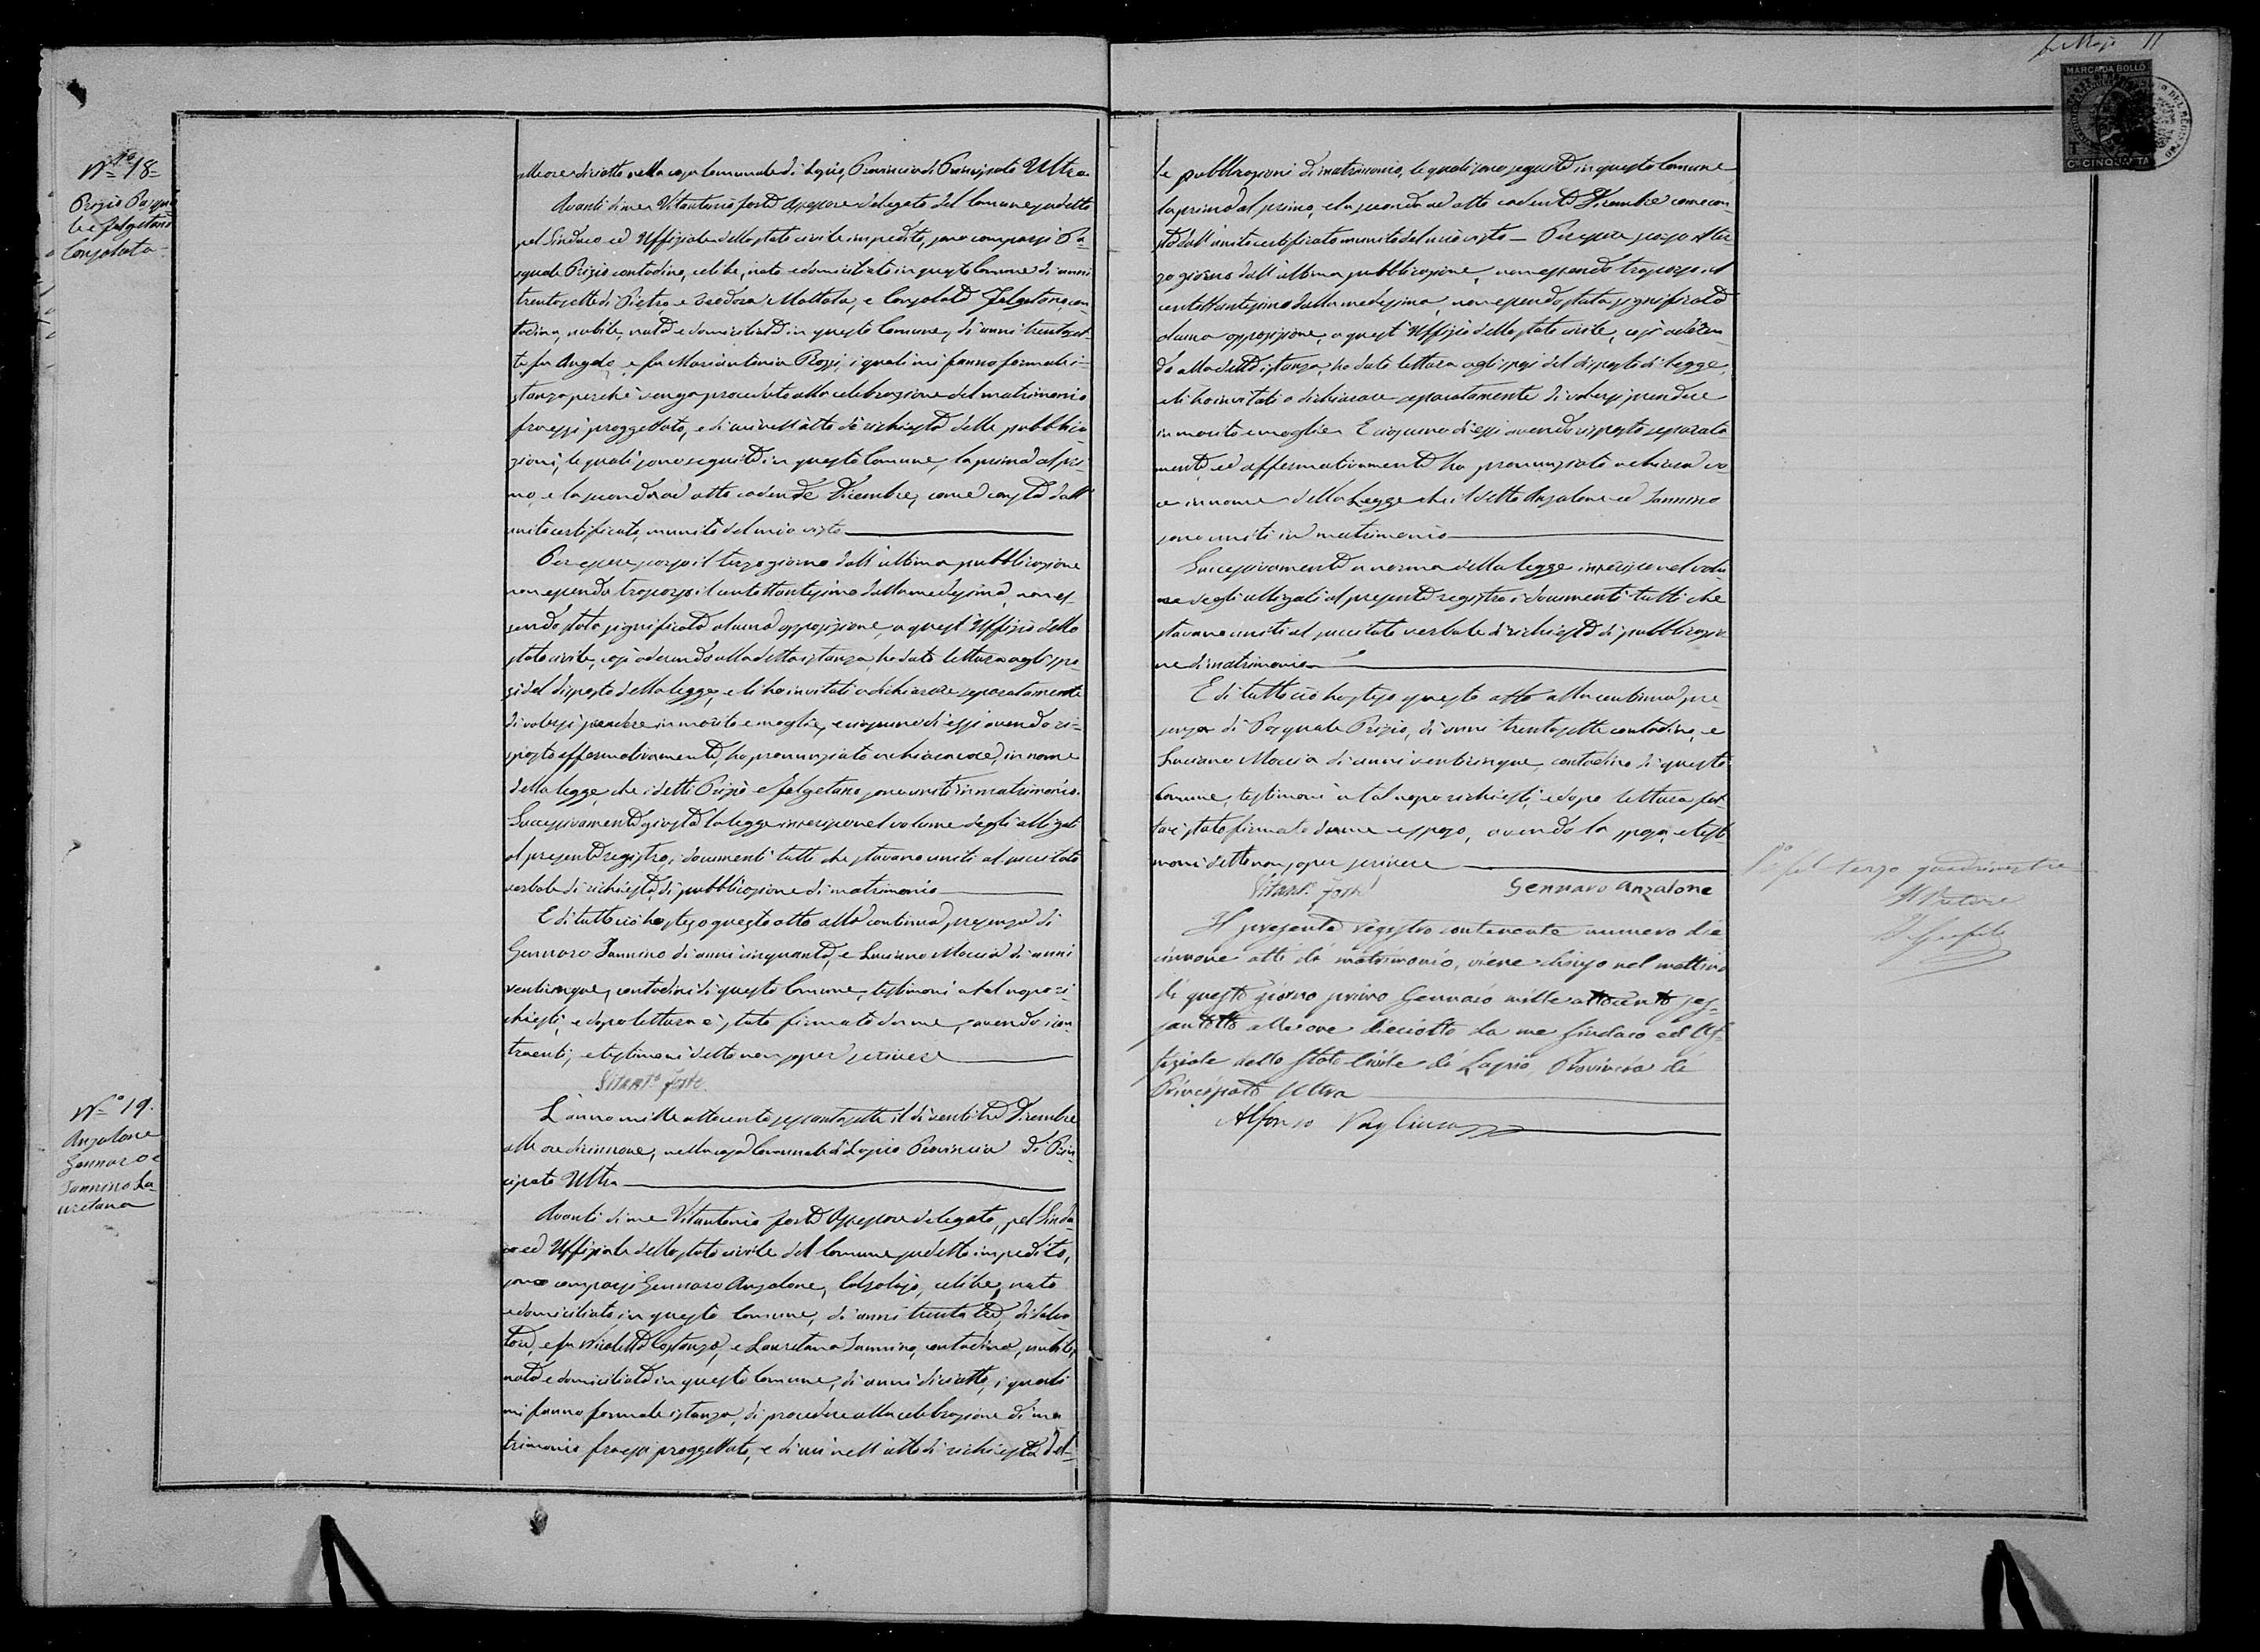 11
MARCA DA BOLLO
C. CINQUANTA
N.° 18
Prizio Pasqua
le e Falgetano
Consolata
alle ore diciotto nella casa Comunale di Lapio, Provincia di Principato Ultra
Avanti di me Vitantonio Forte Assessore delegato del Comune sudetto
pel Sindaco ed Uffiziale dello stato civile impedito, sono comparsi Pa-
squale Prizio contadino, celibe, nato e domiciliato in questo Comune di anni
trentasette di Pietro, e Mattola, e Consolata Falgetano, con-
tadina, nubile, nata e domiciliata in questo Comune, di anni trentaset-
te fu Angelo e fu Mariantonia Rozzi, i quali mi fanno formale i-
stanza perchè venga proceduto alla celebrazione del matrimonio
fra essi proggettato, e di cui nell'atto di richiesta delle pubblica-
zioni, le quali sono seguite in questo Comune, la prima al pri-
mo, e la seconda ad otto cadente Dicembre, come consta dall'
unito certificato, munito del mio visto
Per essere scorso il terzo giorno dall'ultima pubblicazione
non essendo trascorso il centottantesimo dalla medesima, non es-
sendo stata significata alcuna opposizione, a quest'Uffizio dello
stato civile, così aderendo alla detta istanza, ho dato lettura agli spo-
si del disposto della legge, e li ho invitati a dichiarare separatamente
di volersi prendere in marito e moglie, e ciascuno di essi avendo ri-
sposto affermativamente, ho pronunziato a chiara voce, in nome
della legge, che i detti Prizio e Falgetano sono uniti in matrimonio.
Successivamente giusta la legge inserisco nel volume degli alligati
al presente registro, i documenti tutti che stavano uniti al succitato
verbale di richiesta di pubblicazione di matrimonio
E di tutto ciò ho steso questo atto alla continua presenza di
Gennaro Iannino di anni cinquanta, e Luciano Moccia di anni
venticinque, contadini di questo Comune, testimoni a tal uopo ri-
chiesti, e dopo lettura è stato firmato da me, avendo i con-
traenti, e testimoni detto non saper scrivere
Vitant.° Forte
N.° 19.
Anzalone
Gennaro e
Iannino La-
uretana
L'anno mille ottocento sessantasette il dì ventitre Dicembre
alle ore diciannove, nella casa Comunale di Lapio Provincia di Prin-
cipato Ultra
Avanti di me Vitantonio Forte Assessore delegato, pel Sinda-
co ed Uffiziale dello stato civile del Comune sudetto impedito,
sono comparsi Gennaro Anzalone, Calzolajo, celibe, nato
e domiciliato in questo Comune, di anni trentatre, di Salva-
tore, e fu Nicoletta Costanzo, e Lauretana Iannino, contadina, nubile,
nata e domiciliata in questo Comune, di anni diciotto, i quali
mi fanno formale istanza, di procedere alla celebrazione di ma
trimonio fra essi proggettato, e di cui nell'atto di richiesta del-
le pubblicazioni di matrimonio, le quali sono seguite in questo Comune
la prima al primo, e la seconda ad otto cadente Dicembre come con-
sta dall'unito certificato munito del mio visto — Per essere scorso il ter-
zo giorno dall'ultima pubblicazione, non essendo trascorso il
centottantesimo dalla medesima, non essendo stata significata
alcuna opposizione, a quest'Uffizio dello stato civile, così aderen-
do alla detta istanza, ho dato lettura agli sposi del disposto di legge,
e li ho invitati a dichiarare separatamente di volersi prendere
in marito e moglie E ciascuno di essi avendo risposto separata
mente, ed affermativamente ho pronunziato a chiara vo-
ce in nome della Legge che i detto Anzalone ed Iannino
sono uniti in matrimonio
Successivamente a norma della legge inserisco nel volu-
me degli alligati al presente registro i documenti tutti che
stavano uniti al succitato verbale di richiesta di pubblicazio
ne di matrimonio
E di tutto ciò ho steso questo atto alla continua pre-
senza di Pasquale Prizio, di anni trentasette contadino, e
Luciano Moccia di anni venticinque, contadino di questo
Comune, testimoni a tal uopo richiesti, e dopo lettura fat-
ta è stato firmato da me e sposo, avendo la sposa, e testi
moni detto non saper scrivere
Vitant.° Forte Gennaro Anzalone
Il presente registro contenente numero die
cinnove atti di matrimonio, viene chiuso nel mattino
di questo giorno primo Gennaio mille ottocento ses-
santotto alle ore dieciotto da me Sindaco ed Uf-
fiziale dello Stato Civile di Lapio, Provincia di
Principato Ultra
Alfonso
pel terzo quadrimestre
Il Pretore